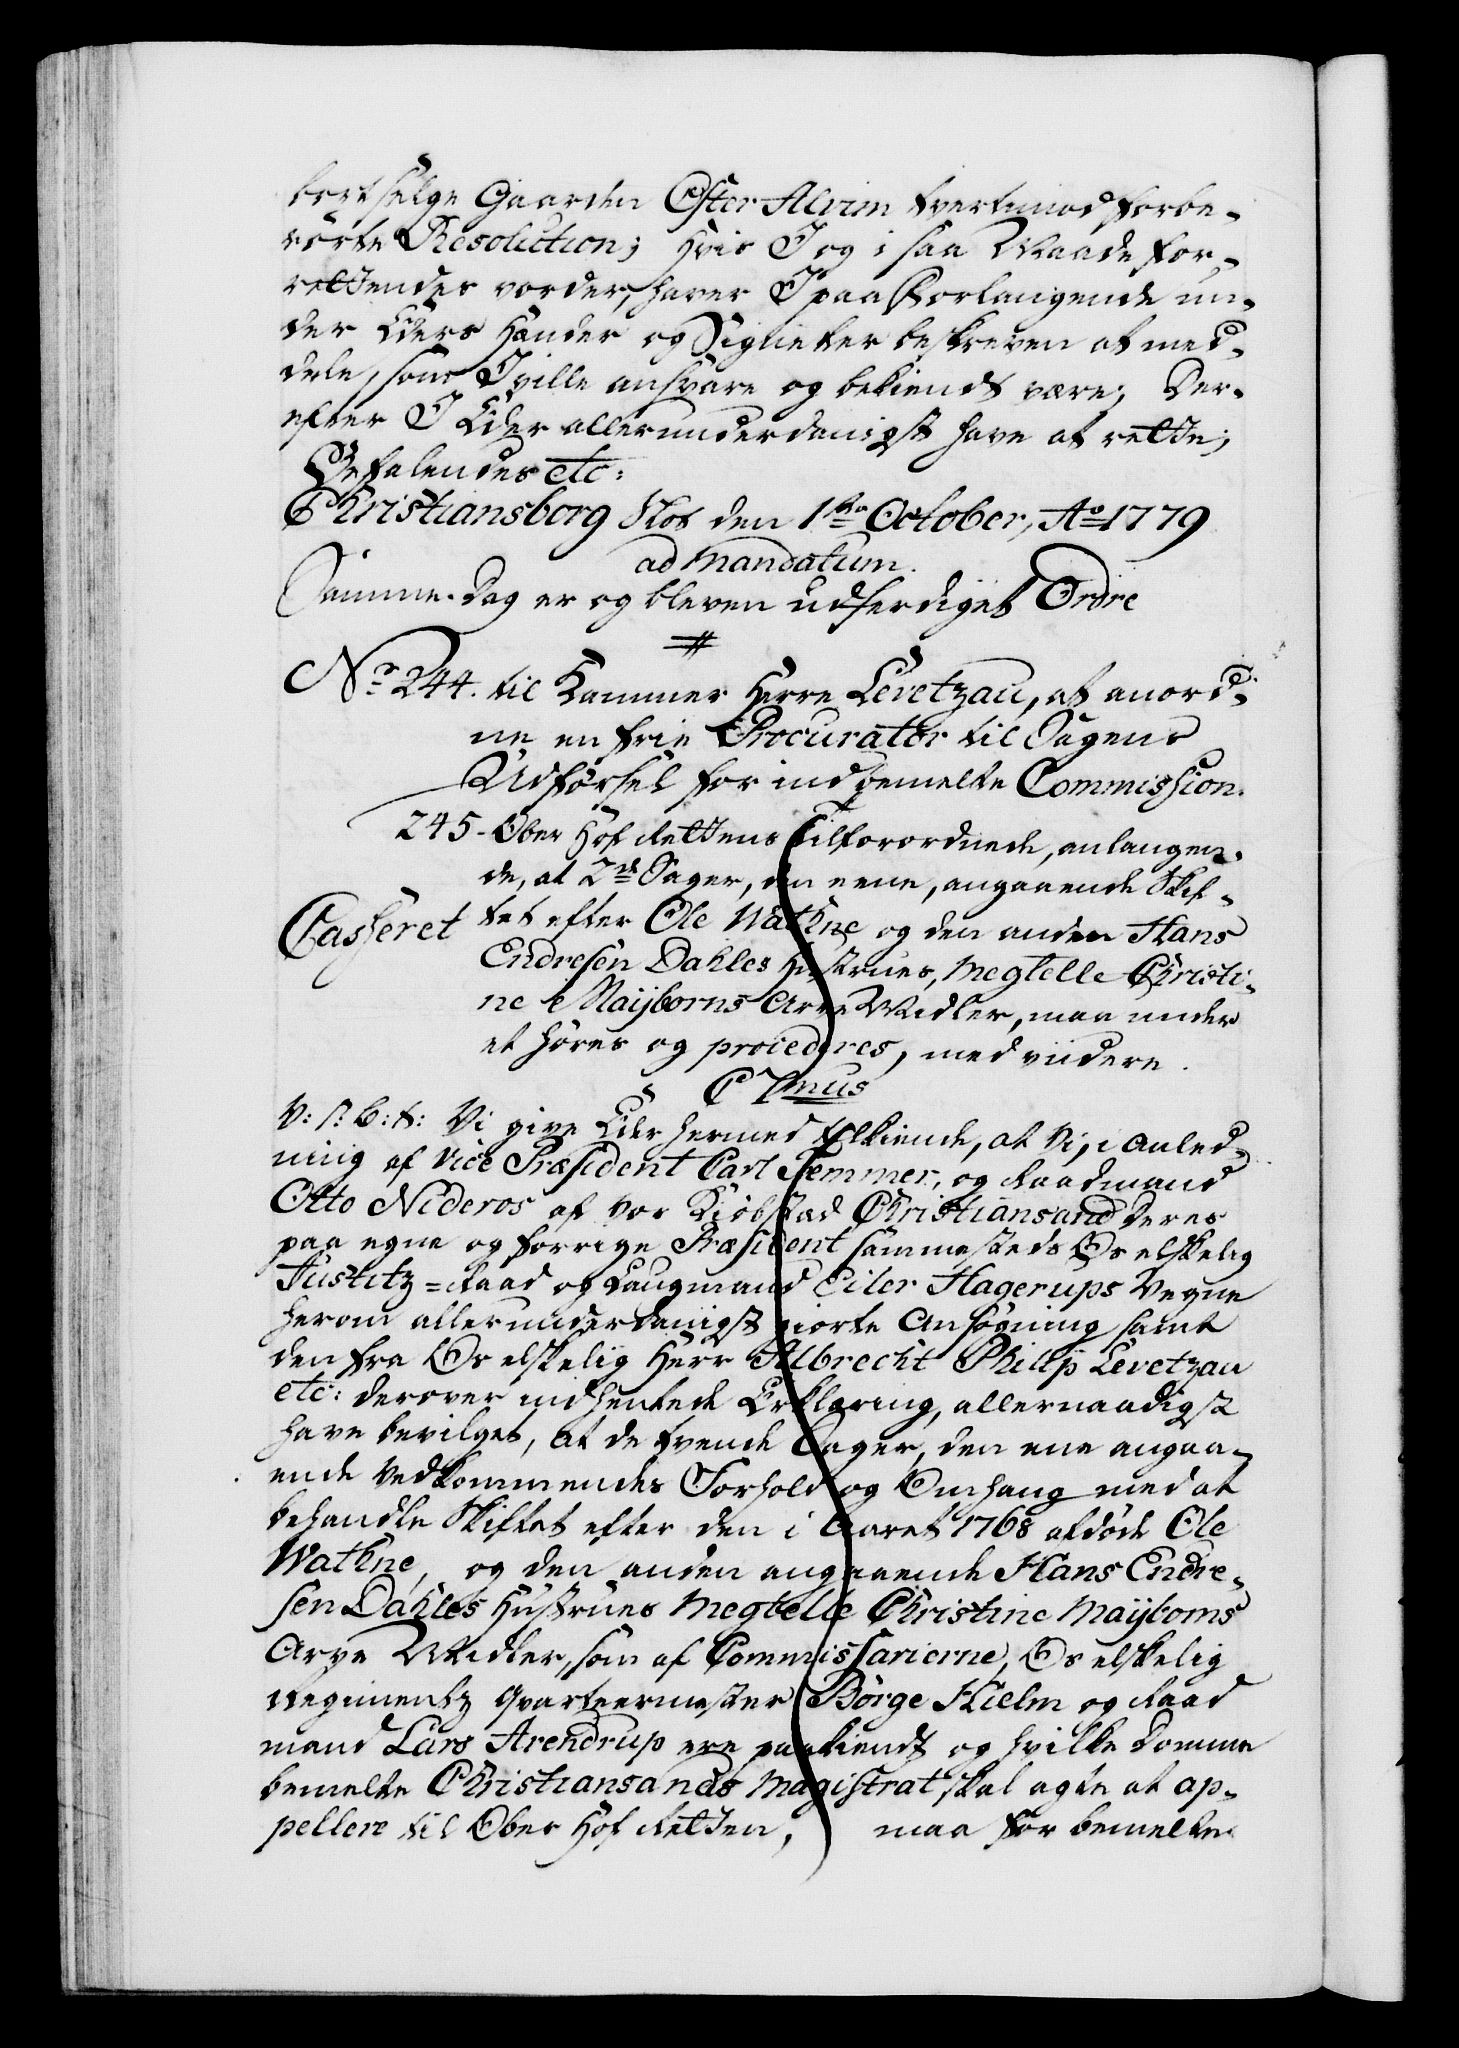 bortsælge Gaarden Øster Alvim tvertimod forbe-
rörte Resolution; Hvis I og i saa Maade for-
rettendes vorder, haver I paa Forlangende un-
der Eders Hænder og Signetter beskreven at med-
dele, som I ville ansvare og bekiendt være; Der-
efter I Eder allerunderdanigst have at rette;
Befalendes etc:
Christiansborg Slot den 1ste October, Ao 1779
ad mandatum.
Samme Dag er og bleven udferdiget Ordre
No 244. til Kammer Herre Levetzau, at anord-
ne en frie Procurator til Sagens
Udførsel for indbemelte Commission.
245- Ober Hof Rettens Tilforordnede, anlangen-
de, at 2de Sager, den eene, angaaende Skif-
Casseret tet efter Ole Wathne og den anden Hans
Endresen Dahles Hustrues, Megtelle Christi-
ne Maijborns Arve Midler, maa under
et høres og procederes, med viidere.
C 7mus
V: S: B: T: Vi give Eder hermed tilkiende, at Vi, i Anled-
ning af Vice Præsident Carl Femmer, og Raadmand
Otto Nideros af vor Kiøbstad Christiansand deres
paa egne og forrige Præsident sammesteds Os elskelig
Justitz-Raad og Laugmand Eiler Hagerups Vegne
herom allerunderdanigst giorte Ansøgning samt
den fra Os elskelig Herr Albrecht Philip Levetzau
etc: derover indhentede Erklæring, allernaadigst
have bevilget, at de tvende Sager, den ene angaa-
ende Vedkommendes Forhold og Omgang med at
behandle Skiftet efter den i Aaret 1768 afdöde Ole
Wathne, og den anden angaaende Hans Endre-
sen Dahles Hustrues Megtelle Christine Maijborns
Arve Midler, som af Commissarierne, Os elskelig
Regimentz Qvarteermester Börge Hielm og Raad
mand Lars Arendrup ere paakiendt og hvilke Domme
bemelte Christiansands Magistrat skal agte at ap-
pellere til Ober Hof Retten, maa for bemelte